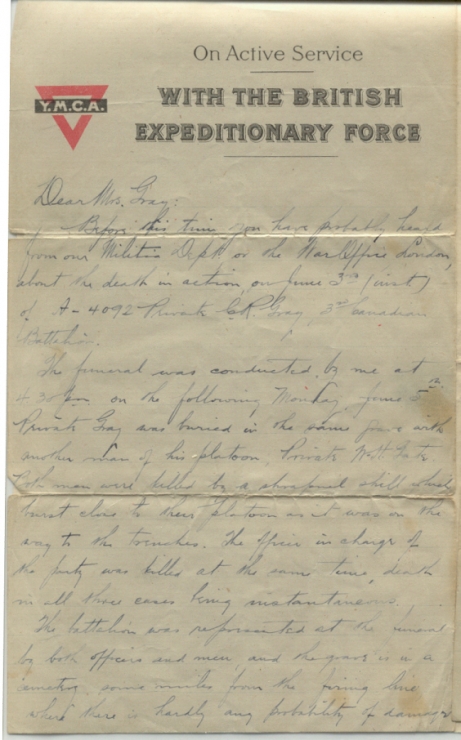 On Active Service
WITH THE BRITISH
Y.M.C.A.
EXPEDITIONARY FORCE
Dear Mrs. Gray:
Before this time you have probably heard
from our Militia Dept or the War Office London,
about the death in action, on June 3rd (inst)
of A-4092 Private C.R. Gray, 3rd Canadian
Battalion.
The funeral was conducted by me at
4.30 on the following Monday June 5th
Private Gray was buried in the same grave with
another man of his platoon, Private
Both men were killed by a shrapnel shell which
burst close to their platoon as it was on the
way to the trenches. The officer in charge of
the party was killed at the same time, death
in all these cases being instantaneous.
The battalion was represented at the funeral
by both officers and men and the grave is in a
cemetery some miles from the firing line
where there is hardly any probability of damage